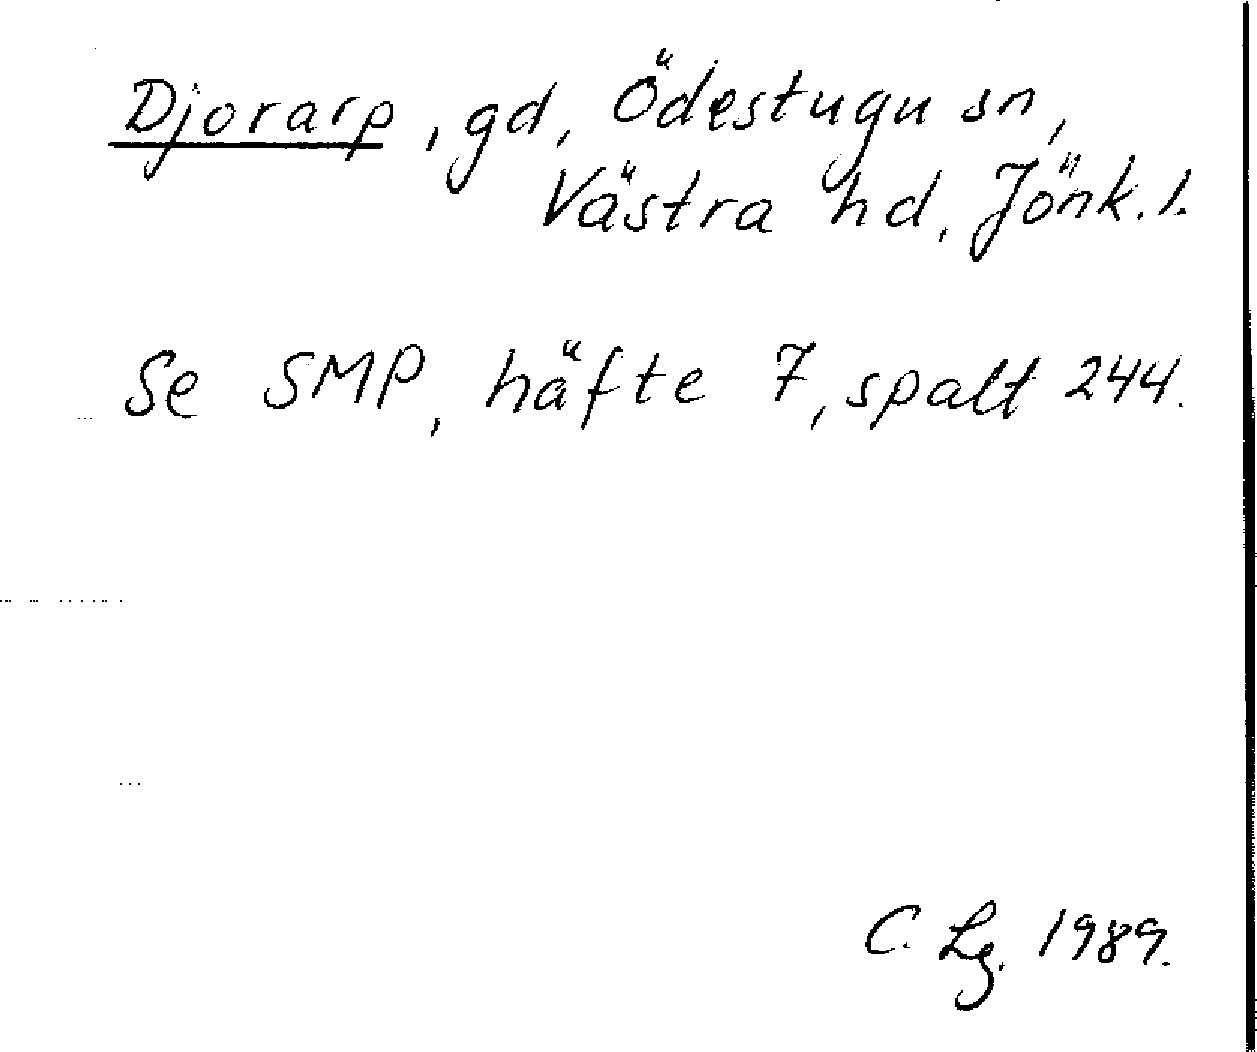 Djorarp, gd, Ödestugu sn,
Västra hd, Jönk. l.
Se SMP, häfte 7, spalt 244.
C. Lg. 1989.